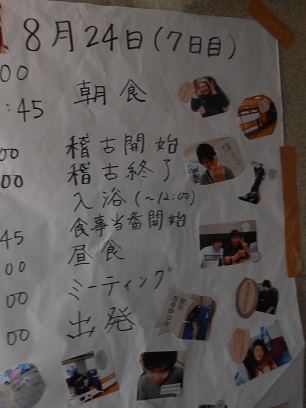 8月24日(7日目)
00
:45 朝食
00 稽古開始
00 稽古終了
入浴(〜12:00)
45 食事当番開始
00 昼食
00 ミーティング
00 出発